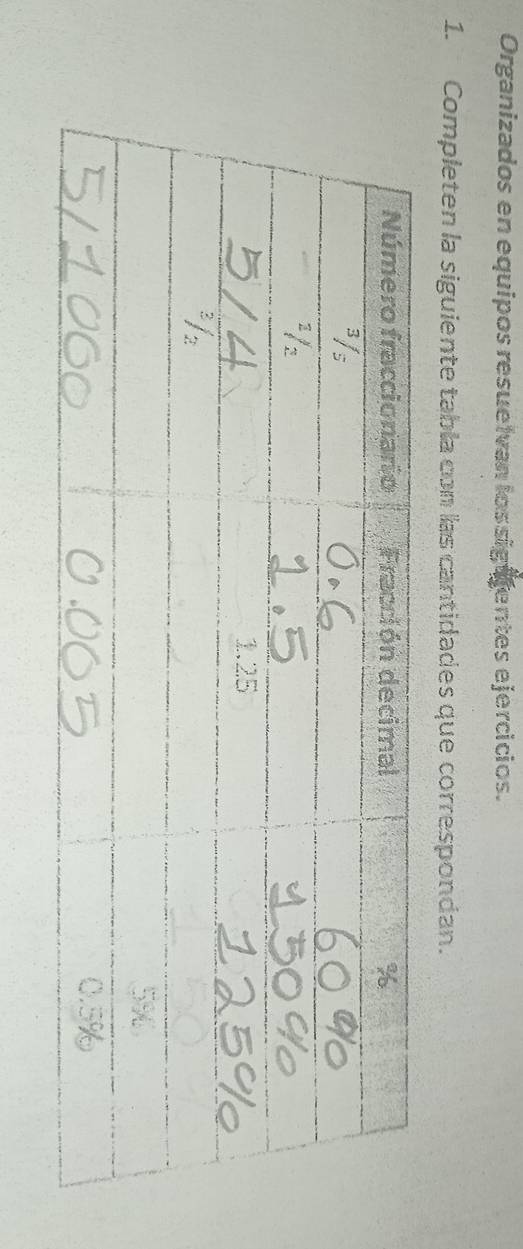 Organizados en equipos resuelvan los siguientes ejercicios.
1. Completen la siguiente tabla con las cantidades que correspondan.
Número fraccionario Fracción decimal %
3/5 0.6 60%
1/2 1.5 150%
5/4 1.25 125%
3/2
5%
5/1000 0.005 0.5%